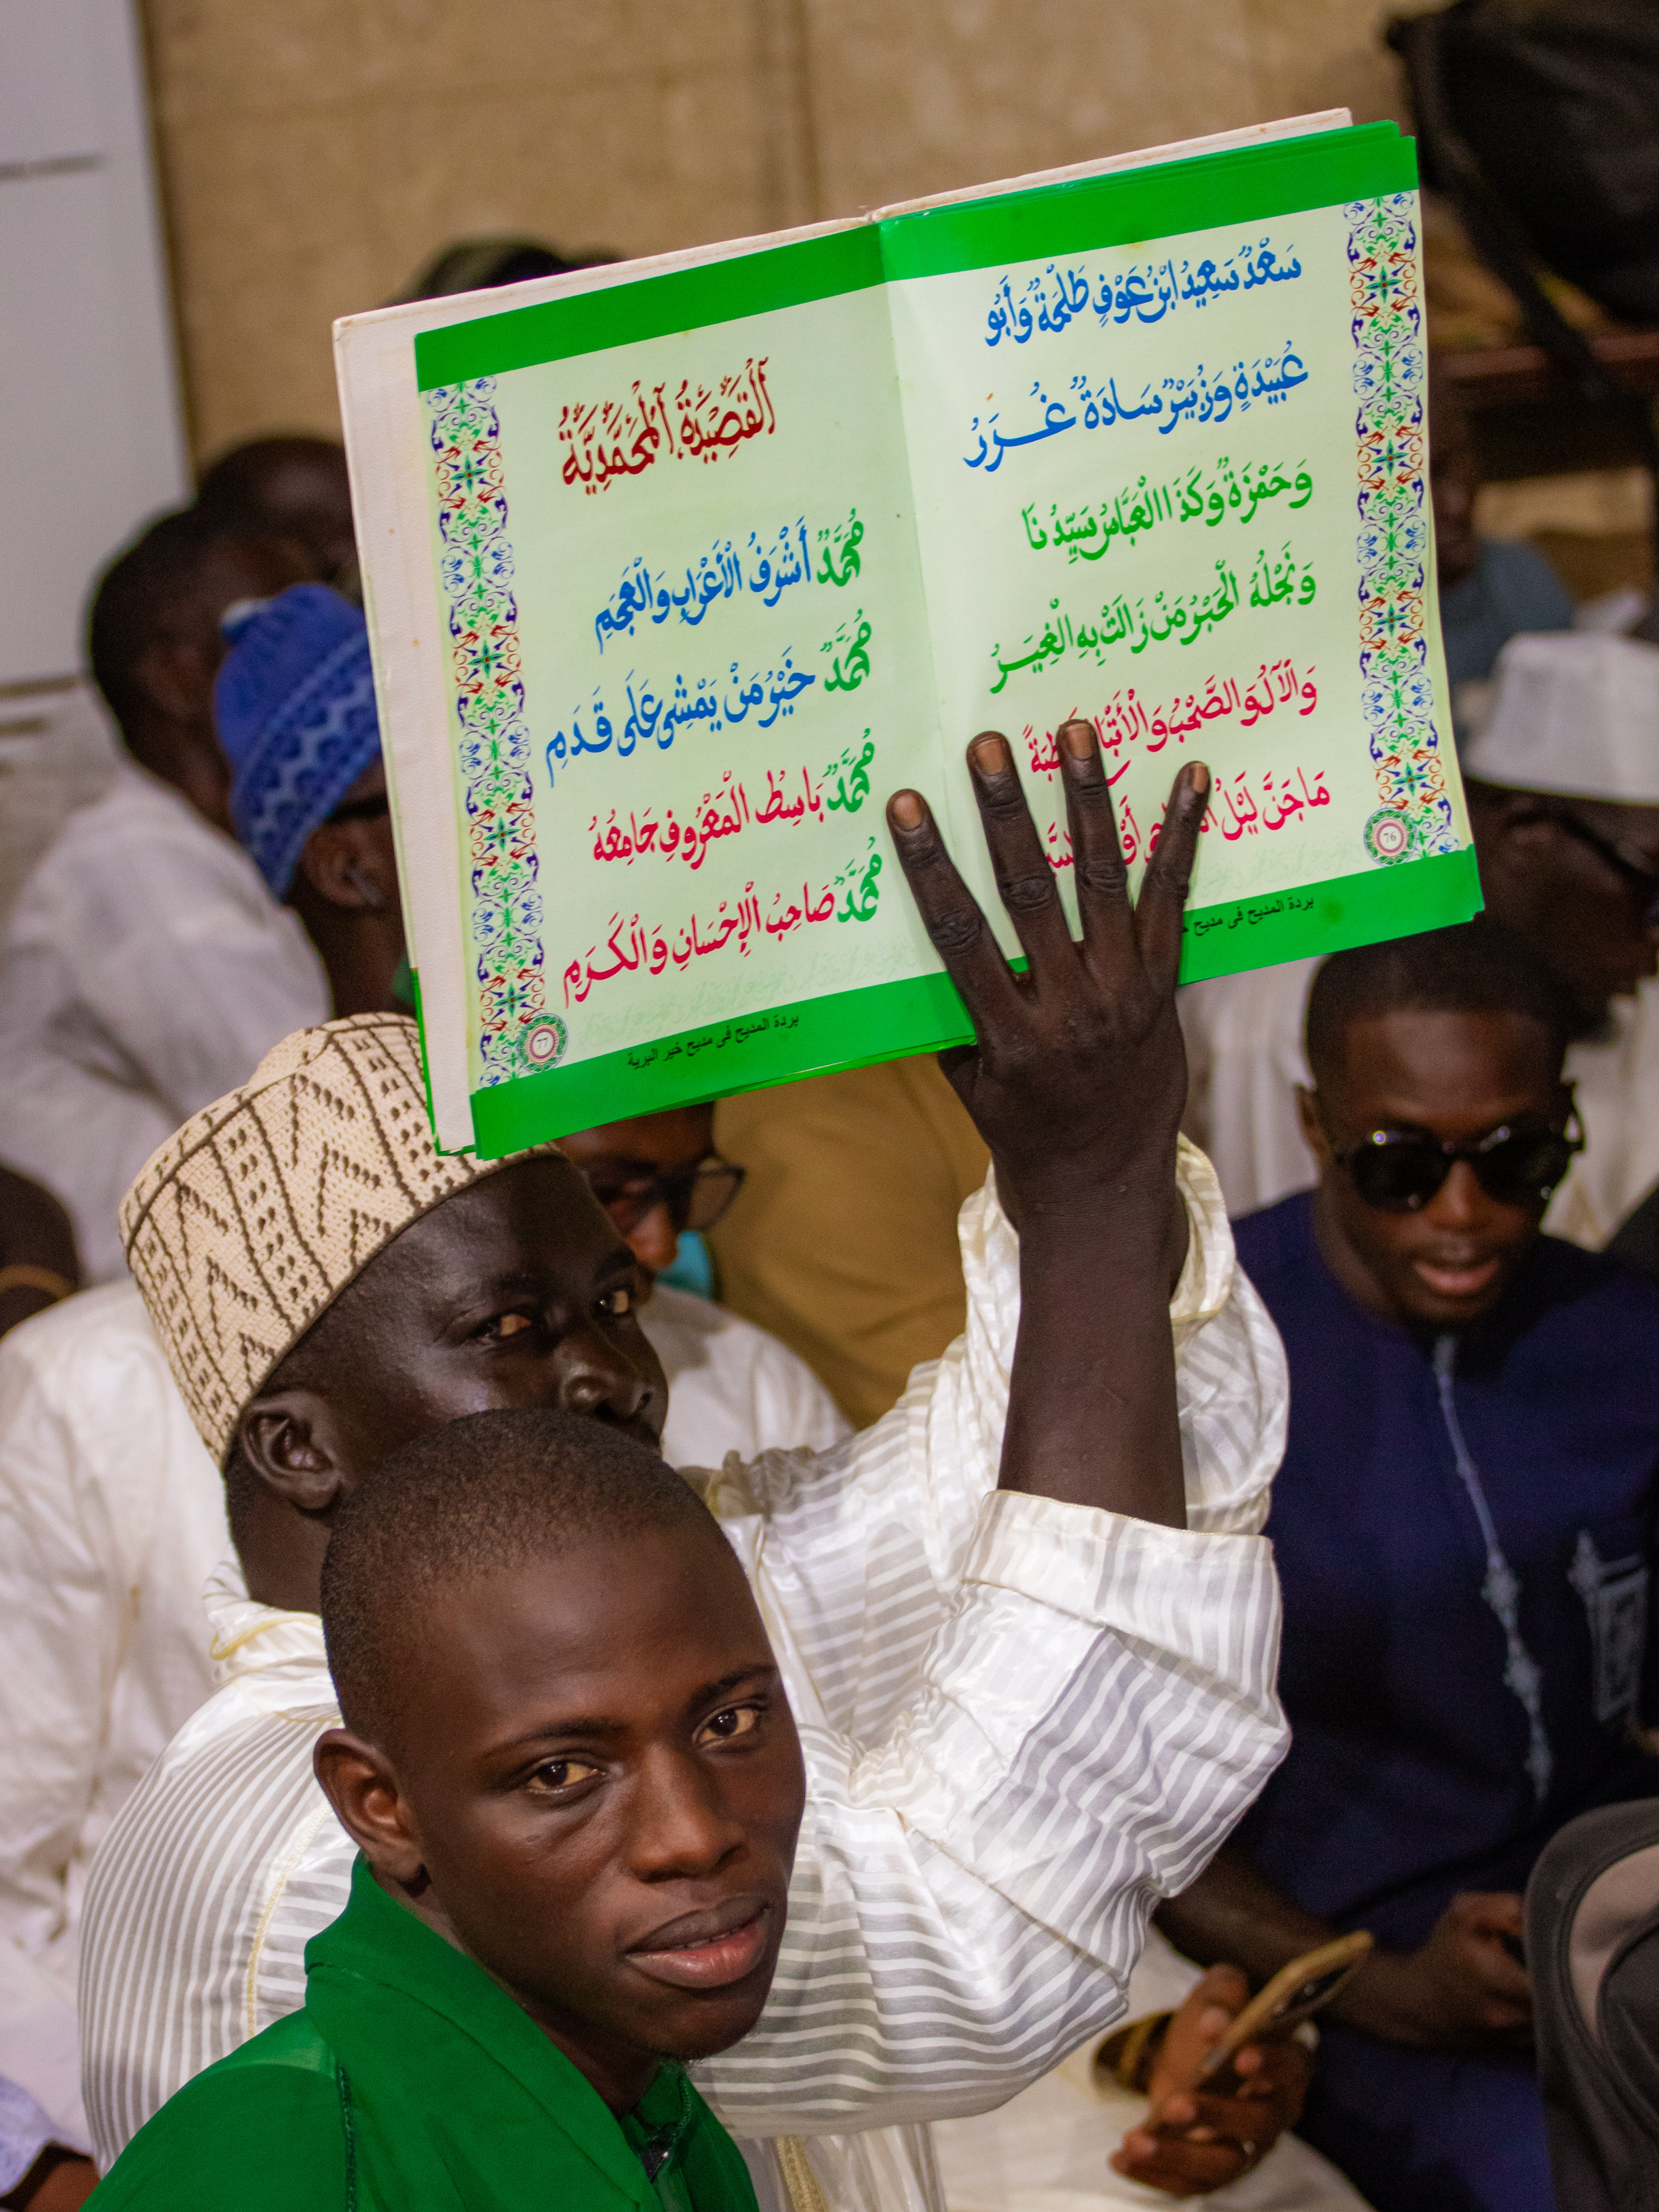 سَعْدٌ سَعِيدُ ابْنُ عَوْفٍ طَلْحَةٌ وَأَبُو
عُبَيْدَةٍ وَزُبَيْرٌ سَادَةٌ غُرَرُ
وَحَمْزَةٌ وَكَذَا الْعَبَّاسُ سَيِّدُنَا
وَنَجْلُهُ الْحَبْرُ مَنْ زَالَتْ بِهِ الْغِيَرُ
وَالْآلُ وَالصَّحْبُ وَالْأَتْبَا
مَا جَنَّ لَيْلُ
76
بردة المديح فى مديح
اَلْقَصِيْدَةُ اَلْمُحَمَّدِيَّةُ
مُحَمَّدٌ أَشْرَفُ الْأَعْرَابِ وَالْعَجَمِ
مُحَمَّدٌ خَيْرُ مَنْ يَمْشِى عَلَى قَدَمِ
مُحَمَّدٌ بَاسِطُ الْمَعْرُوفِ جَامِعُهُ
مُحَمَّدٌ صَاحِبُ الْإِحْسَانِ وَالْكَرَمِ
77
بردة المديح فى مديح خير البرية